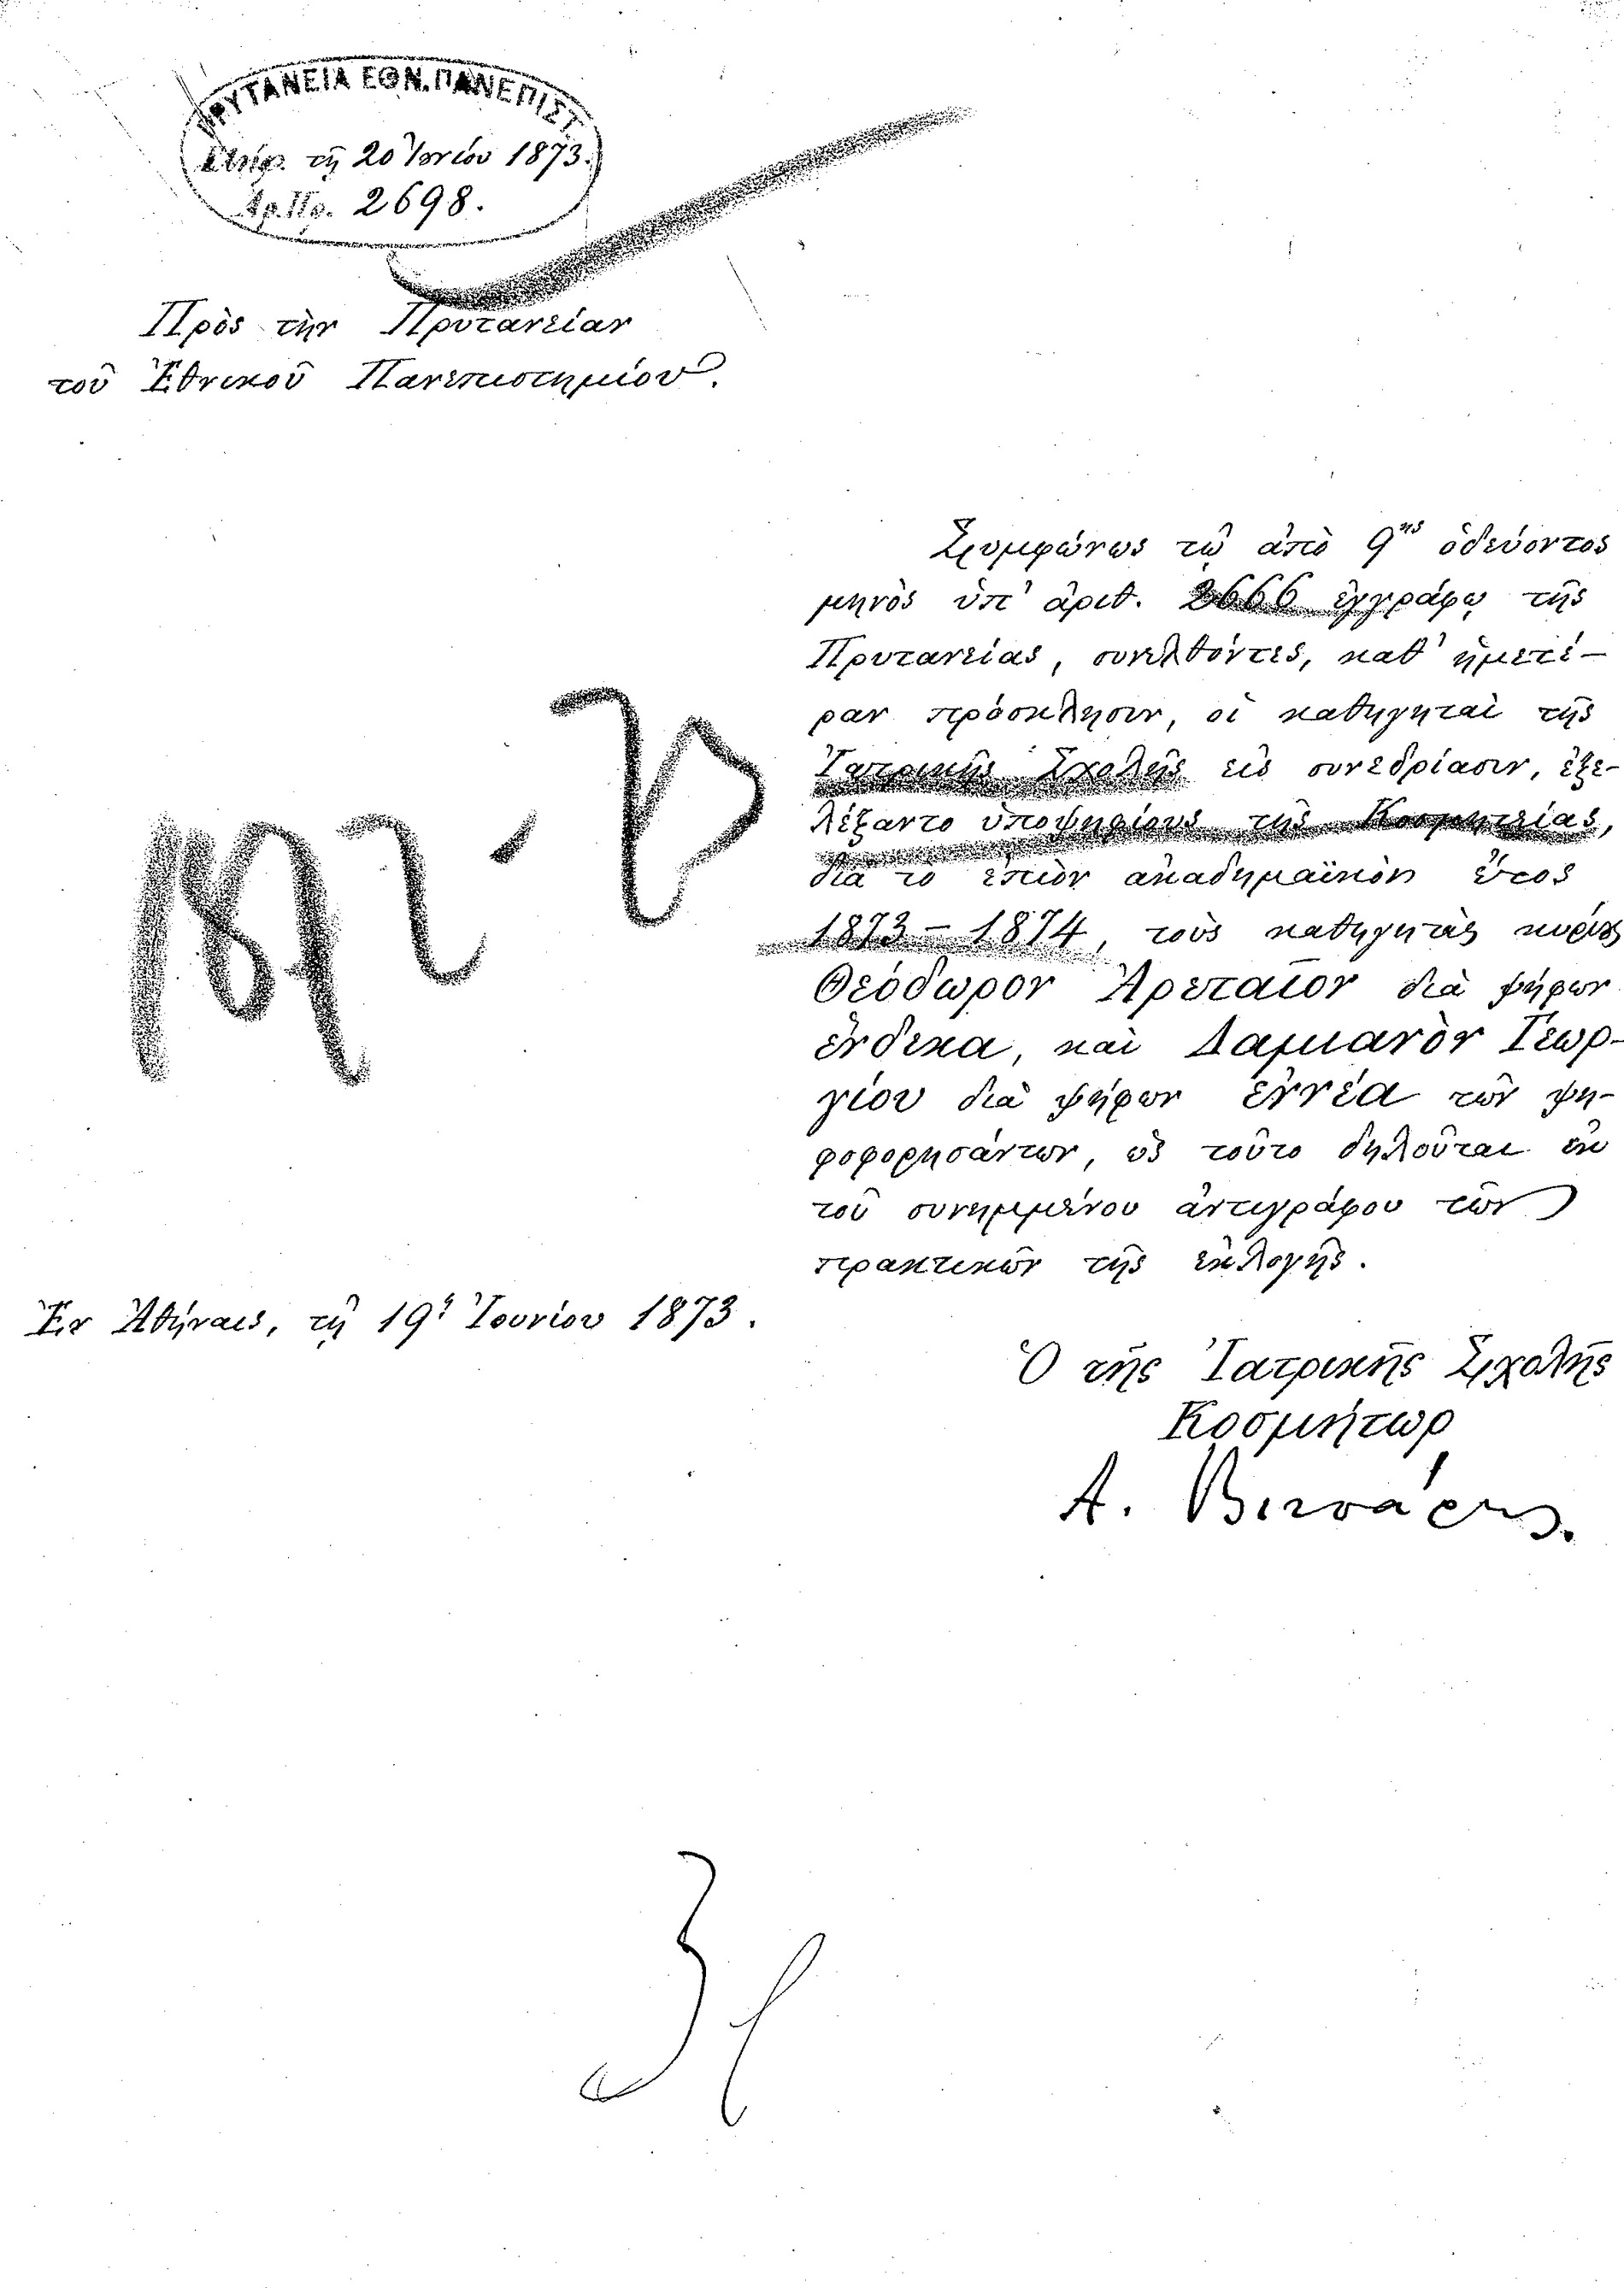 ΠΡΥΤΑΝΕΙΑ ΕΘΝ. ΠΑΝΕΠΙΣΤ.
τῇ 20 Ἰουνίου 1873.
Ἀρ. Πρ. 2698.
Πρὸς τὴν Πρυτανείαν
τοῦ Ἐθνικοῦ Πανεπιστημίου.
Συμφώνως τῷ ἀπὸ 9ης ὁδεύοντος
μηνὸς ὑπ' ἀριθ. 2666 ἐγγράφῳ τῆς
Πρυτανείας, συνελθόντες, καθ' ἡμετέ-
ραν πρόσκλησιν, οἱ καθηγηταὶ τῆς
Ἰατρικῆς Σχολῆς εἰς συνεδρίασιν, ἐξε-
λέξαντο ὑποψηφίους τῆς Κοσμητείας,
διὰ τὸ ἐπιὸν ἀκαδημαϊκὸν ἔτος
1873 - 1874, τοὺς καθηγητὰς κυρίους
Θεόδωρον Ἀρεταῖον διὰ ψήφων
ἕνδεκα, καὶ Δαμιανὸν Γεωρ-
γίου διὰ ψήφων ἐννέα τῶν ψη-
φοφορησάντων, ὡς τοῦτο δηλοῦται ἐκ
τοῦ συνημμένου ἀντιγράφου τῶν
πρακτικῶν τῆς ἐκλογῆς.
Ἐν Ἀθήναις, τῇ 19ῃ Ἰουνίου 1873.
Ὁ τῆς Ἰατρικῆς Σχολῆς
Κοσμήτωρ
Α. Βιτσάρης.